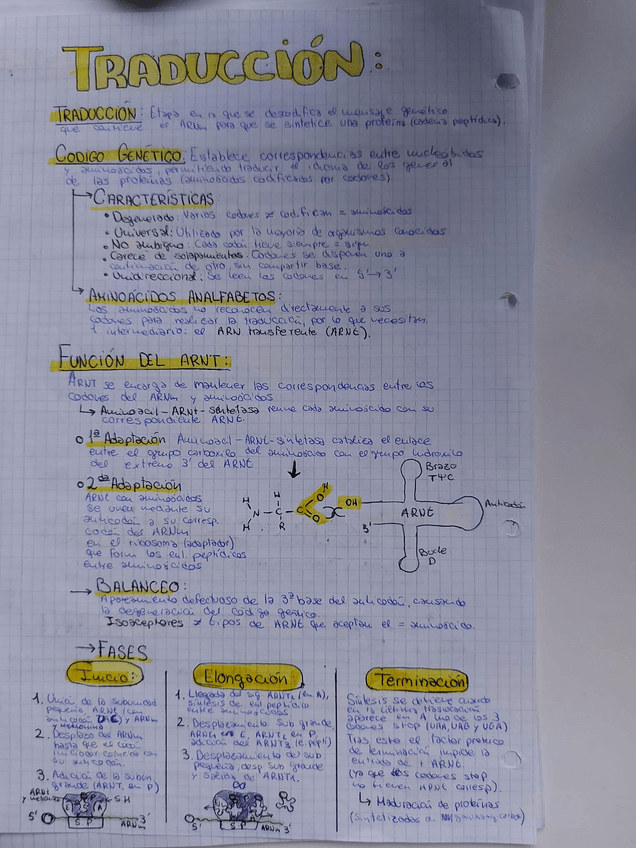 TRADUCCIÓN:
TRADUCCIÓN: Etapa en la que se descodifica el mensaje genético
que contiene el ARNm para que se sintetice una proteína (cadena peptídica).
CODIGO GENÉTICO: Establece correspondencias entre nucleótidos
y aminoácidos, permitiendo traducir el idioma de los genes al
de las proteínas (aminoácidos codificados por codones)
CARACTERÍSTICAS
• Degenerado: Varios codones ≠ codifican = aminoácidos
• Universal: Utilizado por la mayoría de organismos conocidos
• No ambiguo: Cada codón tiene siempre = sign.
• Carece de solapamientos: Codones se disponen uno a
continuación de otro, sin compartir base.
• Unidireccional: Se leen los codones en 5'→3'
AMINOÁCIDOS ANALFABETOS:
Los aminoácidos no reconocen directamente a sus
codones para realizar la traducción, por lo que necesitan
1 intermediario: el ARN transferente (ARNt).
FUNCIÓN DEL ARNT:
ARNT se encarga de mantener las correspondencias entre los
codones del ARNm y aminoácidos
↳ Aminoacil-ARNt-sintetasa reune cada aminoácido con su
correspondiente ARNt.
1ª Adaptación Aminoacil-ARNt-sintetasa cataliza el enlace
entre el grupo carboxilo del aminoácido con el grupo hidroxilo
del extremo 3' del ARNt
2ª Adaptación
ARNt con aminoácidos
se unen mediante su
anticodón a su corresp.
codón del ARNm
en el ribosoma (adaptador)
que form los enl. peptídicos
entre aminoácidos
H N H C H R C O OH
OH
3'
ARNt
Brazo
TΨC
Anticodón
Bucle
D
→ BALANCEO:
Apareamiento defectuoso de la 3ª base del anticodón, causando
la degeneración del código genético.
Isoaceptores ≠ tipos de ARNt que aceptan el = aminoácido.
→ FASES
Inicio:
1. Unión de la subunidad
pequeña, ARNt (con
anticodón UAC) y ARNm
+ metionina
2. Desplazo del ARNm
hasta que es codón
iniciador coincida con
su anticodón.
3. Adición de la subun
grande (ARNt, en P)
ARNt
y metionina
SH
5'
S P
ARNm 3'
Elongación
1. Llegada del sig ARNt2 (en A),
síntesis de enl peptídico
entre aminoácidos
2. Desplazamiento sub grande,
ARNt1 en E, ARNt2 en P,
adición del ARNt3 (e. pepti)
3. Desplazamiento del sub
pequeña, desp sub grande
y salida de ARNT1.
5'
S P
ARNm 3'
Terminación
Síntesis se detiene cuando
en la última translocación
aparece en A uno de los 3
codones stop (UAA, UAG y UGA)
Tras esto el factor proteico
de terminación impide la
entrada de 1 ARNt
(ya que los codones stop
no tienen ARNt corresp).
↳ Maduración de proteínas
(sintetizadas